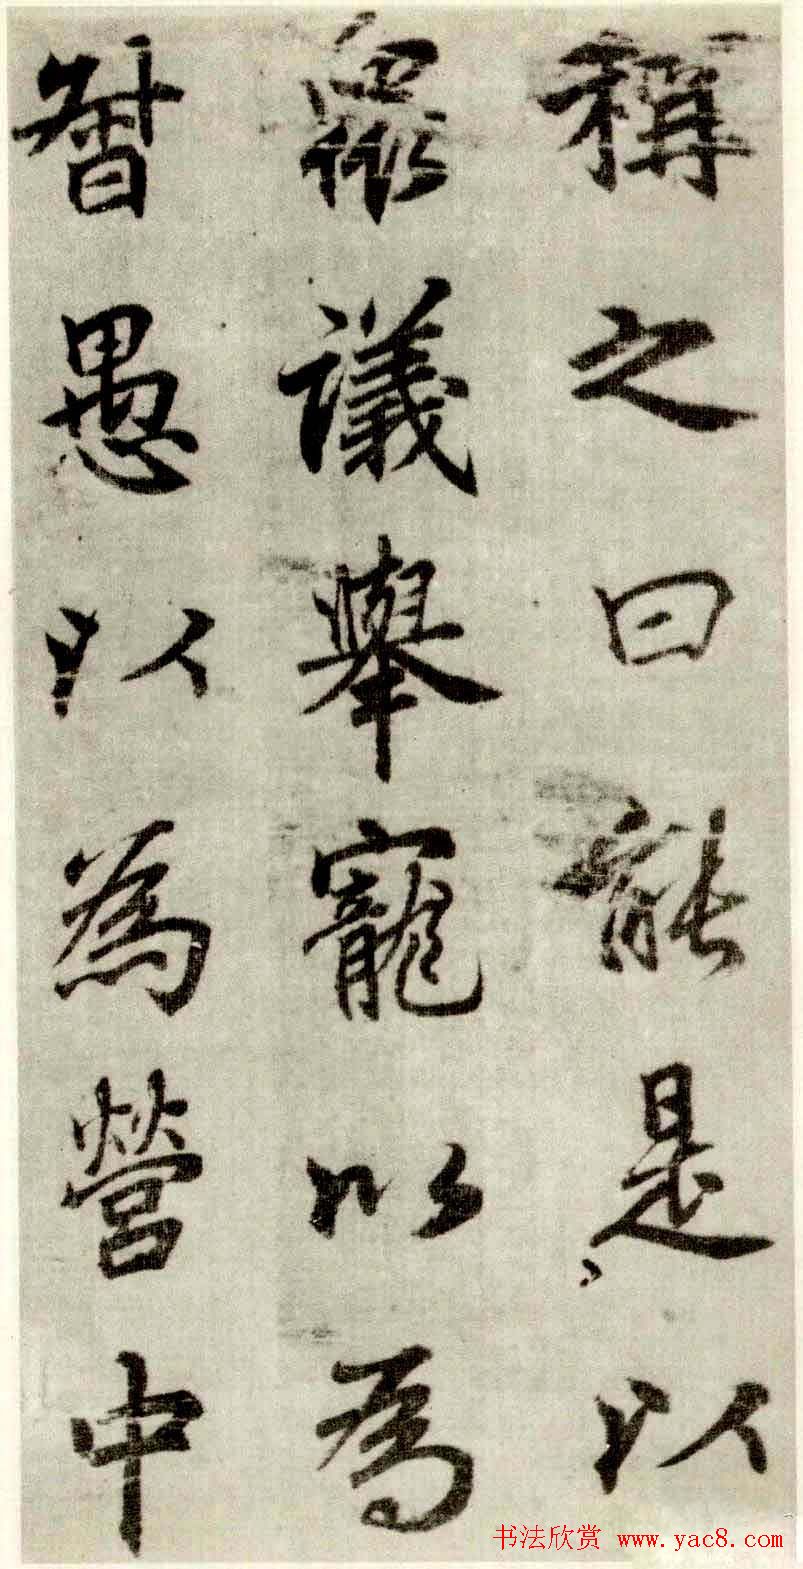 稱之曰能是以
衆議舉寵以為
督愚以為營中
书法欣赏 www.yac8.com